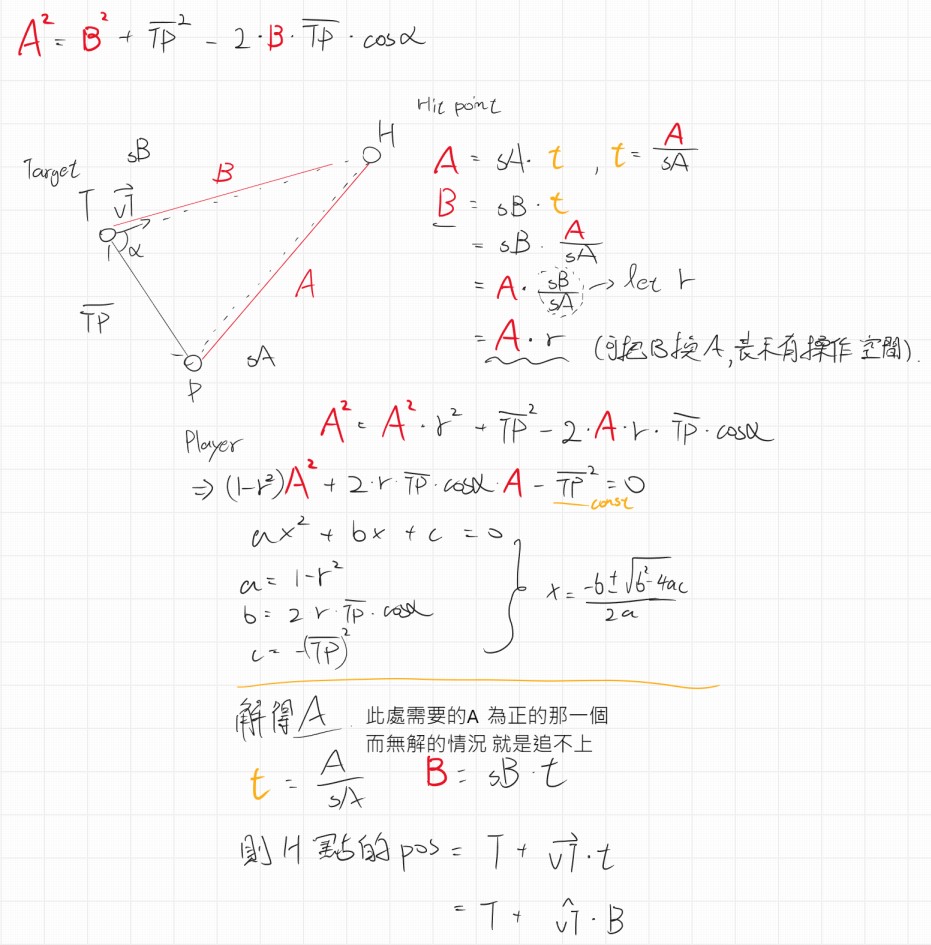 A² = B² + T̅P̅² - 2·B·T̅P̅·cosα
Hit point
H
Target
sB
B
T
v⃗T
α
T̅P̅
A
sA
P
Player
A = sA·t , t = A/sA
B = sB·t
= sB·A/sA
= A·sB/sA → let r
= A·r (可把B換A,表示有操作空間).
A² = A²·r² + T̅P̅² - 2·A·r·T̅P̅·cosα
⇒ (1-r²)A² + 2·r·T̅P̅·cosα·A - T̅P̅² = 0
const
ax² + bx + c = 0
a = 1-r²
b = 2 r·T̅P̅·cosα
c = -(T̅P̅)²
x = (-b±√(b²-4ac))/2a
解得A
此處需要的A 為正的那一個
而無解的情況 就是追不上
t = A/sA B = sB·t
則 H 點的 pos = T + v⃗T·t
= T + v̂T·B